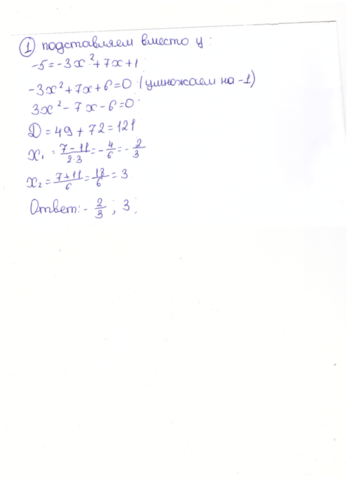 ① подставляем вместо y:
-5=-3x²+7x+1
-3x²+7x+6=0 (умножаем на -1)
3x²-7x-6=0
D=49+72=121
x₁=\frac{7-11}{2·3}=-\frac{4}{6}=-\frac{2}{3}
x₂=\frac{7+11}{6}=\frac{18}{6}=3
Ответ: -\frac{2}{3}; 3.